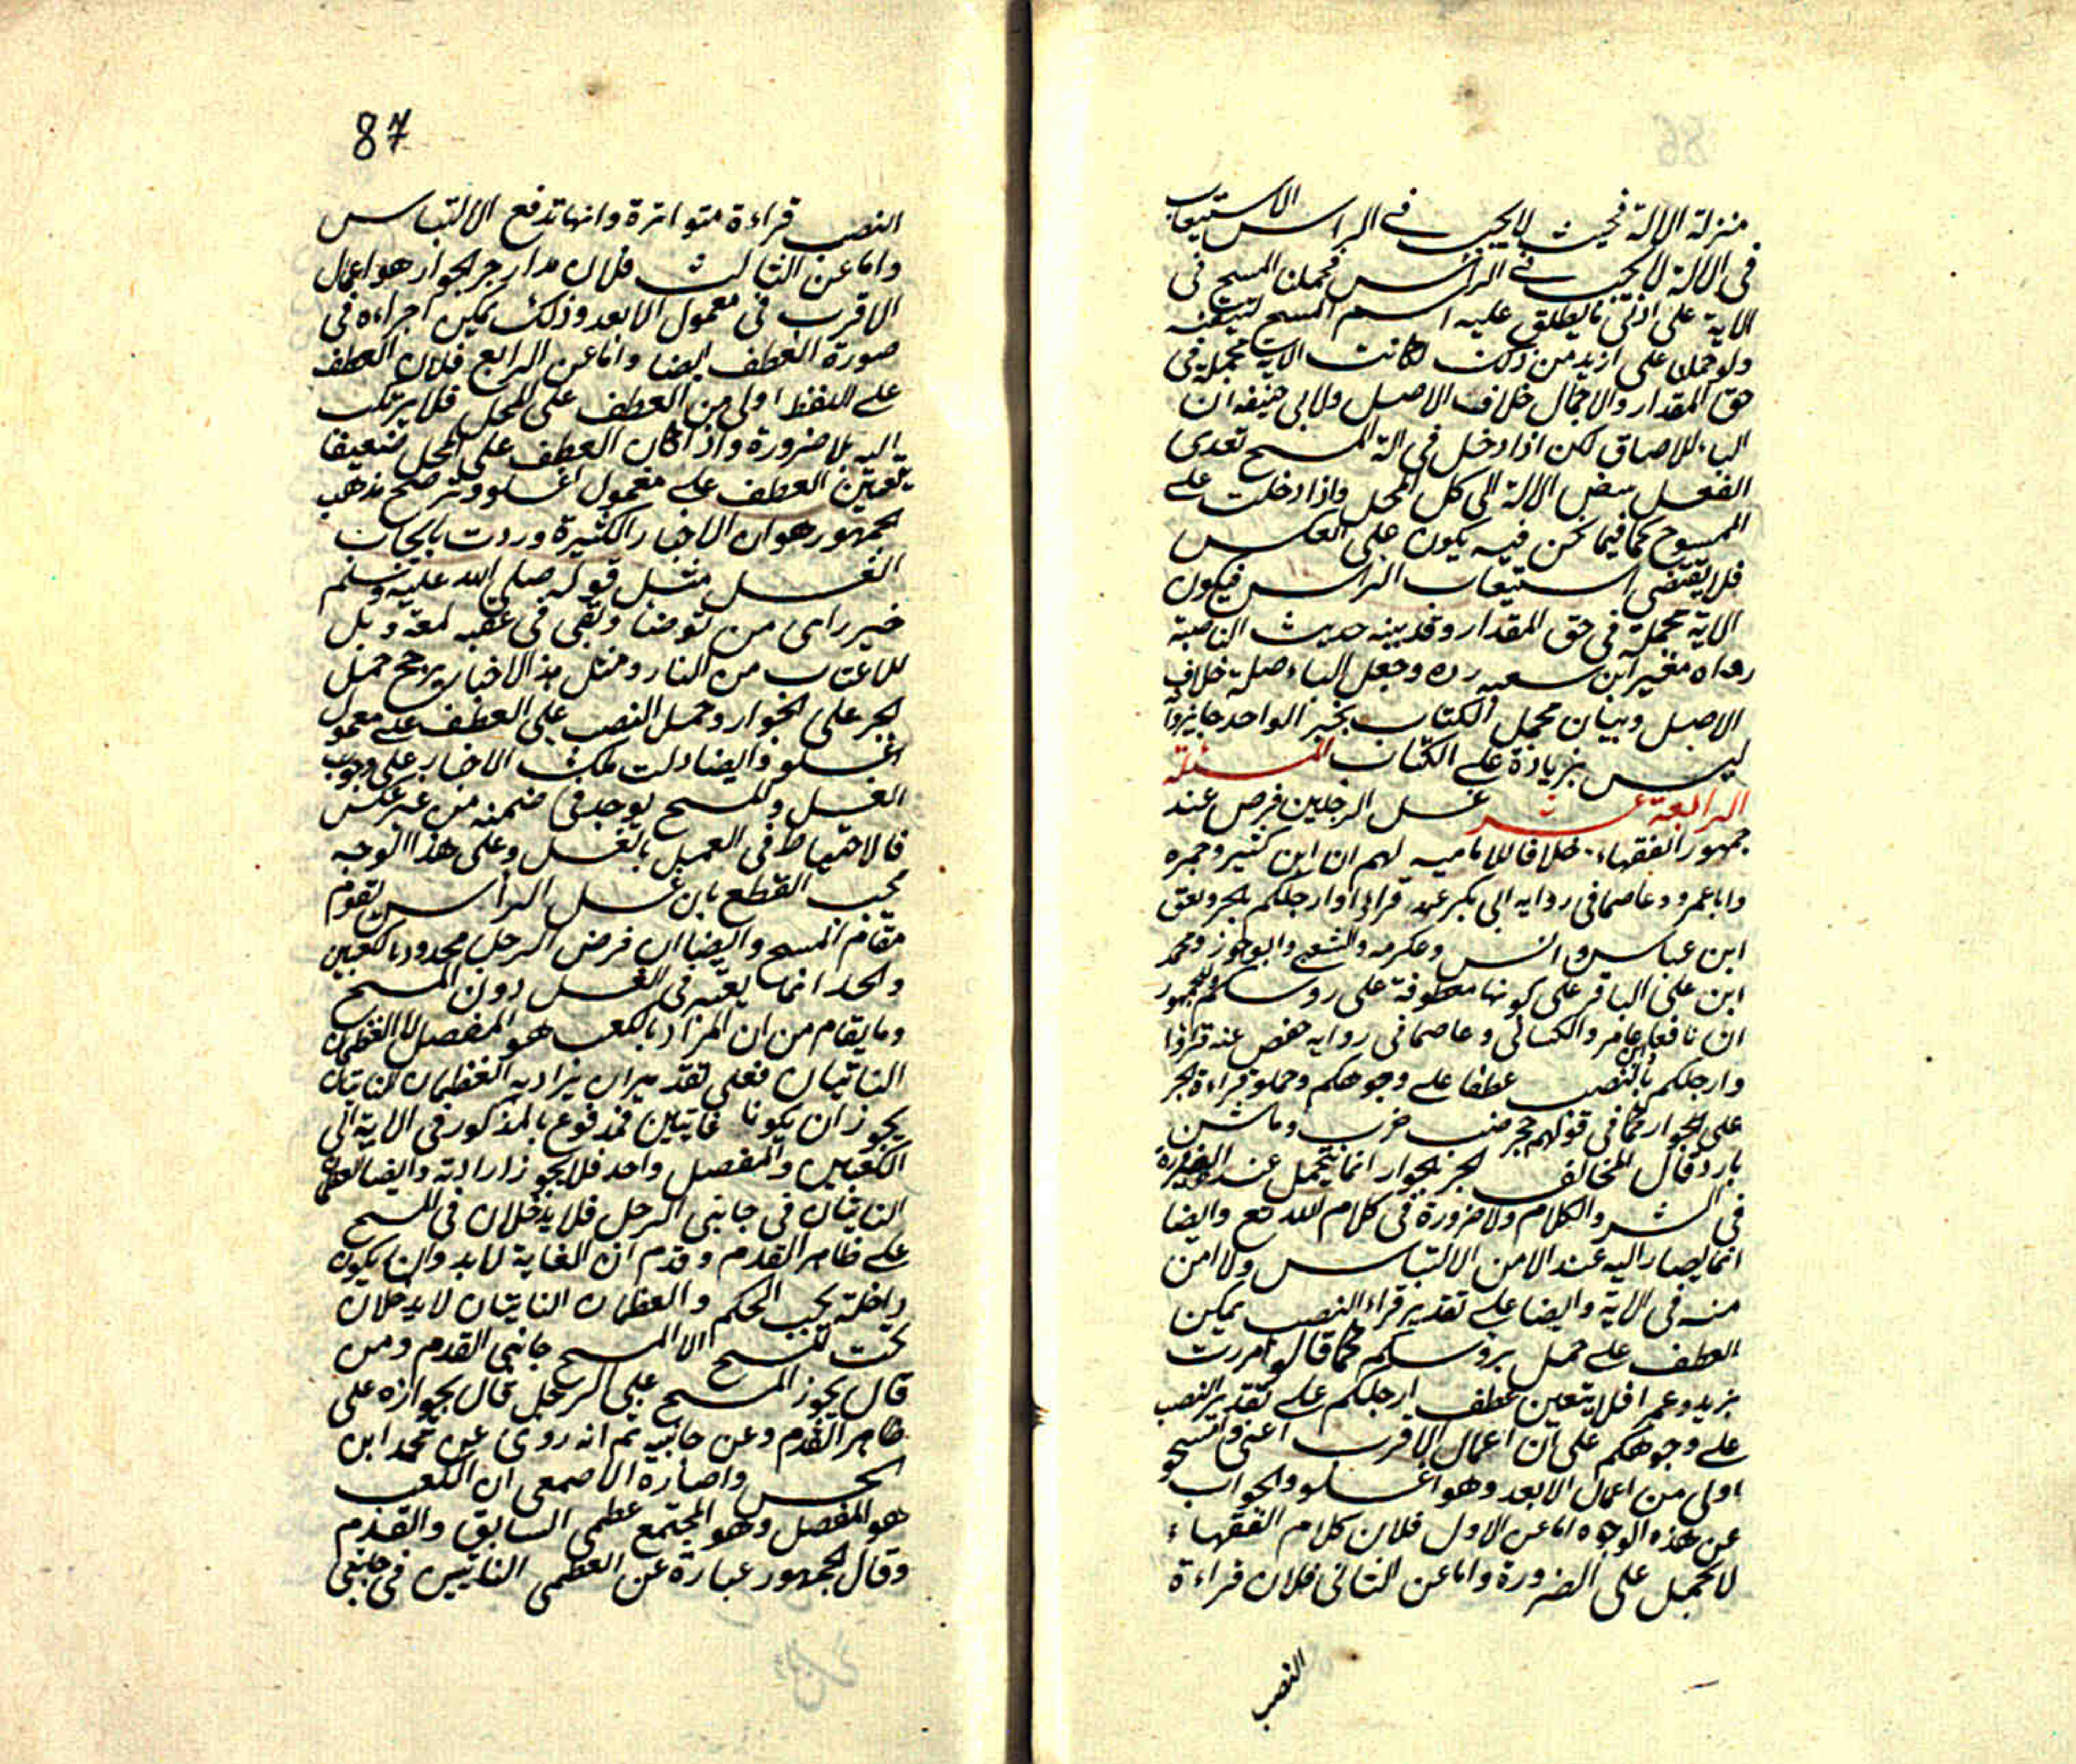 منزلة الالة فحيث لا يجب في الراس الاستيعاب
في الالة لا يجب في الراس فحملنا المسح في
الاية على ادنى ما يطلق عليه اسم المسح لتيقنه
ولو حملنا على ازيد من ذلك لكانت الاية مجملة في
حق المقدار والاجمال خلاف الاصل ولابي حنيفه ان
الباء للاصاق لكن اذا دخل في الة المسح تعدى
الفعل ببعض الالة الى كل المحل واذا دخلت على
الممسوح كما فيما نحن فيه يكون على العكس
فلا يقتضي استيعاب الراس فيكون
الاية مجملة في حق المقدار وقد بينه حديث الناصية
رواه مغير ابن سعبه رده وجعل الباء صلة خلاف
الاصل وبيان مجمل الكتاب بخبر الواحد جايز وانه
ليس بزيادة على الكتاب المسئلة
الرابعة عشر غسل الرجلين فرض عند
جمهور الفقهاء خلافا للاماميه لهم ان ابن كثير وحمزه
وابا عمرو وعاصما في روايه ابي بكر عنه قراوا وارجلكم بالجر ونقل
ابن عباس وانس وعكرمه والشعبي وابو جوز ومحمد
ابن على الباقر على كونها معطوفة على روسكم للجمهور
ان نافعا وابن عامر والكسائي وعاصما في روايه حفص عنه قراوا
وارجلكم بالنصب عطفا على وجوهكم وحملوا قراءة الجر
على الجوار كما في قولهم حجر ضب خرب وماء شن
بارد قال المخالف لجر الجوار انما يتحمل عند الضرورة
في الشر والكلام ولا ضرورة في كلام الله تع وايضا
انما يصار اليه عند الامن الالتباس ولا امن
منه في الاية وايضا على تقدير قراءة النصب يمكن
العطف على محل بروسكم كما قالوا مررت
بزيد وعمرا فلا يتعين عطف ارجلكم على تقدير النصب
على وجوهكم على ان اعمال الاقرب اعنى وامسحو
اولى من اعمال الابعد وهو اغسلو والجواب
عن هذه الوجوه اما عن الاول فلان كلام الفقهاء
لا تحمل على الضرورة واما عن الثاني فلان قراءة
النصب
87
النصب قراءة متواترة وانها تدفع الالتباس
واما عن الثالث فلان مدار جر الجوار هو اعمال
الاقرب في معمول الابعد وذلك يمكن اجراءه في
صورة العطف ايضا واما عن الرابع فلان العطف
على اللفظ اولى من العطف على المحل فلا يرتكب
اليه بلا ضرورة واذا كان العطف على المحل ضعيفا
يتعين العطف على معمول اغسلو ومرجح مذهب
الجمهور هو ان الاخبار الكثيرة وردت بايجاب
الغسل مثل قوله صلى الله عليه وسلم
حين راى من توضا وبقى في عقبه لمعة ويل
للاعقاب من النار ومثل هذا الاخبار يرجح حمل
الجر على الجوار وحمل النصب على العطف على معمول
اغسلو وايضا دلت تلك الاخبار على وجوب
الغسل والمسح يوجد في ضمنه من غير عكس
فالاحتياط في العمل بالغسل وعلى هذا الوجه
يجب القطع بان غسل الراس يقوم
مقام المسح وايضا ان فرض الرجل محدود بالكعبين
والحد انما يعتبر في الغسل دون المسح
وما يقام من ان المراد بالكعب هو المفصل لا العظمان
الناتيان فعلى تقدير ان يراد به العظمان الناتيان
يجوز ان يكونا غايتين فمدفوع بالمذكور في الاية الى
الكعبين والمفصل واحد فلا يجوز ارادته وايضا العظمان
الناتيان في جانبى الرجل فلا يدخلان في المسح
على ظاهر القدم وقدم ان الغاية لابد وان يكون
داخلة تحت الحكم والعظمان الناتيان لا يدخلان
تحت المسح الا المسح جانبى القدم ومن
قال يجوز المسح على الرجل قال بجوازه على
ظاهر القدم وعن جانبيه ثم انه روى عن محمد ابن
الحسن واختاره الاصمعي ان الكعب
هو المفصل وهو المجتمع عظمى السابق والقدم
وقال الجمهور عبارة عن العظمى الناتيين في جانبى